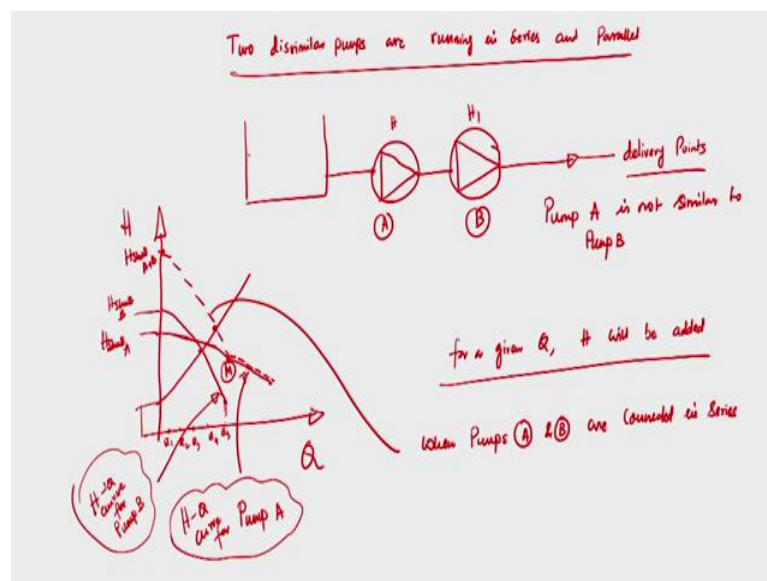 Two dissimilar pumps are running in series and Parallel
H
H1
delivery Points
A
B
Pump A is not Similar to
Pump B
H
Hshut
A+B
Hshut
B
Hshut
A
M
for a given Q, H will be added
when Pumps A & B are Connected in Series
Q1 Q2 Q3 Q4 Q5
Q
H-Q
curve
for
Pump B
H-Q
curve
for Pump A